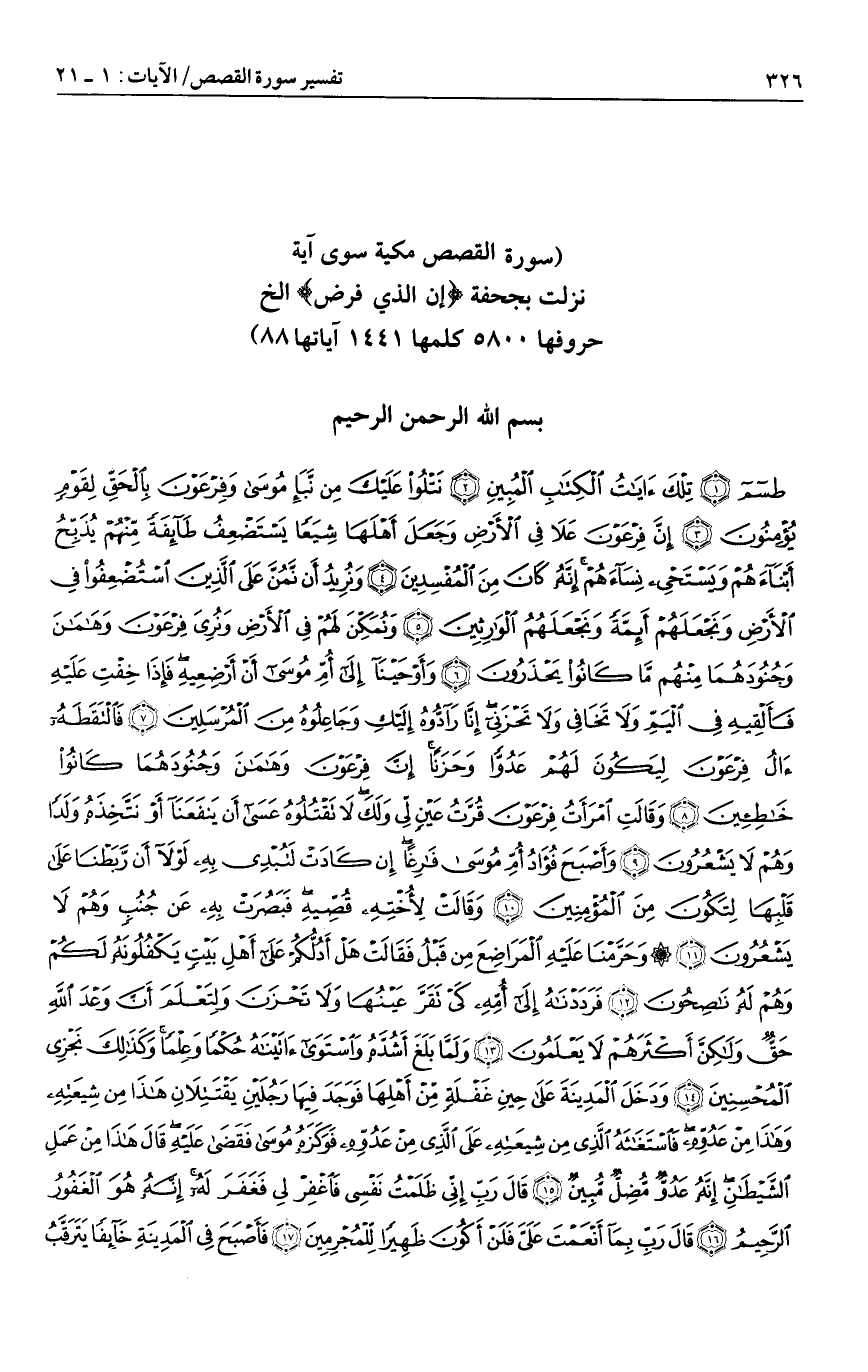 ٣٢٦ تفسير سورة القصص/ الآيات: ١ ـ ٢١
(سورة القصص مكية سوى آية
نزلت بجحفة ﴿إن الذي فرض﴾ الخ
حروفها ٥٨٠٠ كلمها ١٤٤١ آياتها ٨٨)
بسم الله الرحمن الرحيم
طسٓمٓ ﴿١﴾ تِلْكَ ءَايَٰتُ ٱلْكِتَٰبِ ٱلْمُبِينِ ﴿٢﴾ نَتْلُوا۟ عَلَيْكَ مِن نَّبَإِ مُوسَىٰ وَفِرْعَوْنَ بِٱلْحَقِّ لِقَوْمٍ
يُؤْمِنُونَ ﴿٣﴾ إِنَّ فِرْعَوْنَ عَلَا فِى ٱلْأَرْضِ وَجَعَلَ أَهْلَهَا شِيَعًا يَسْتَضْعِفُ طَآئِفَةً مِّنْهُمْ يُذَبِّحُ
أَبْنَآءَهُمْ وَيَسْتَحْىِۦ نِسَآءَهُمْ ۚ إِنَّهُۥ كَانَ مِنَ ٱلْمُفْسِدِينَ ﴿٤﴾ وَنُرِيدُ أَن نَّمُنَّ عَلَى ٱلَّذِينَ ٱسْتُضْعِفُوا۟ فِى
ٱلْأَرْضِ وَنَجْعَلَهُمْ أَئِمَّةً وَنَجْعَلَهُمُ ٱلْوَٰرِثِينَ ﴿٥﴾ وَنُمَكِّنَ لَهُمْ فِى ٱلْأَرْضِ وَنُرِىَ فِرْعَوْنَ وَهَٰمَٰنَ
وَجُنُودَهُمَا مِنْهُم مَّا كَانُوا۟ يَحْذَرُونَ ﴿٦﴾ وَأَوْحَيْنَآ إِلَىٰٓ أُمِّ مُوسَىٰٓ أَنْ أَرْضِعِيهِ ۖ فَإِذَا خِفْتِ عَلَيْهِ
فَأَلْقِيهِ فِى ٱلْيَمِّ وَلَا تَخَافِى وَلَا تَحْزَنِىٓ ۖ إِنَّا رَآدُّوهُ إِلَيْكِ وَجَاعِلُوهُ مِنَ ٱلْمُرْسَلِينَ ﴿٧﴾ فَٱلْتَقَطَهُۥٓ
ءَالُ فِرْعَوْنَ لِيَكُونَ لَهُمْ عَدُوًّا وَحَزَنًا ۗ إِنَّ فِرْعَوْنَ وَهَٰمَٰنَ وَجُنُودَهُمَا كَانُوا۟
خَٰطِـِٔينَ ﴿٨﴾ وَقَالَتِ ٱمْرَأَتُ فِرْعَوْنَ قُرَّتُ عَيْنٍ لِّى وَلَكَ ۖ لَا تَقْتُلُوهُ عَسَىٰٓ أَن يَنفَعَنَآ أَوْ نَتَّخِذَهُۥ وَلَدًا
وَهُمْ لَا يَشْعُرُونَ ﴿٩﴾ وَأَصْبَحَ فُؤَادُ أُمِّ مُوسَىٰ فَٰرِغًا ۖ إِن كَادَتْ لَتُبْدِى بِهِۦ لَوْلَآ أَن رَّبَطْنَا عَلَىٰ
قَلْبِهَا لِتَكُونَ مِنَ ٱلْمُؤْمِنِينَ ﴿١٠﴾ وَقَالَتْ لِأُخْتِهِۦ قُصِّيهِ ۖ فَبَصُرَتْ بِهِۦ عَن جُنُبٍ وَهُمْ لَا
يَشْعُرُونَ ﴿١١﴾ ۞ وَحَرَّمْنَا عَلَيْهِ ٱلْمَرَاضِعَ مِن قَبْلُ فَقَالَتْ هَلْ أَدُلُّكُمْ عَلَىٰٓ أَهْلِ بَيْتٍ يَكْفُلُونَهُۥ لَكُمْ
وَهُمْ لَهُۥ نَٰصِحُونَ ﴿١٢﴾ فَرَدَدْنَٰهُ إِلَىٰٓ أُمِّهِۦ كَىْ تَقَرَّ عَيْنُهَا وَلَا تَحْزَنَ وَلِتَعْلَمَ أَنَّ وَعْدَ ٱللَّهِ
حَقٌّ وَلَٰكِنَّ أَكْثَرَهُمْ لَا يَعْلَمُونَ ﴿١٣﴾ وَلَمَّا بَلَغَ أَشُدَّهُۥ وَٱسْتَوَىٰٓ ءَاتَيْنَٰهُ حُكْمًا وَعِلْمًا ۚ وَكَذَٰلِكَ نَجْزِى
ٱلْمُحْسِنِينَ ﴿١٤﴾ وَدَخَلَ ٱلْمَدِينَةَ عَلَىٰ حِينِ غَفْلَةٍ مِّنْ أَهْلِهَا فَوَجَدَ فِيهَا رَجُلَيْنِ يَقْتَتِلَانِ هَٰذَا مِن شِيعَتِهِۦ
وَهَٰذَا مِنْ عَدُوِّهِۦ ۖ فَٱسْتَغَٰثَهُ ٱلَّذِى مِن شِيعَتِهِۦ عَلَى ٱلَّذِى مِنْ عَدُوِّهِۦ فَوَكَزَهُۥ مُوسَىٰ فَقَضَىٰ عَلَيْهِ ۖ قَالَ هَٰذَا مِنْ عَمَلِ
ٱلشَّيْطَٰنِ ۖ إِنَّهُۥ عَدُوٌّ مُّضِلٌّ مُّبِينٌ ﴿١٥﴾ قَالَ رَبِّ إِنِّى ظَلَمْتُ نَفْسِى فَٱغْفِرْ لِى فَغَفَرَ لَهُۥٓ ۚ إِنَّهُۥ هُوَ ٱلْغَفُورُ
ٱلرَّحِيمُ ﴿١٦﴾ قَالَ رَبِّ بِمَآ أَنْعَمْتَ عَلَىَّ فَلَنْ أَكُونَ ظَهِيرًا لِّلْمُجْرِمِينَ ﴿١٧﴾ فَأَصْبَحَ فِى ٱلْمَدِينَةِ خَآئِفًا يَتَرَقَّبُ